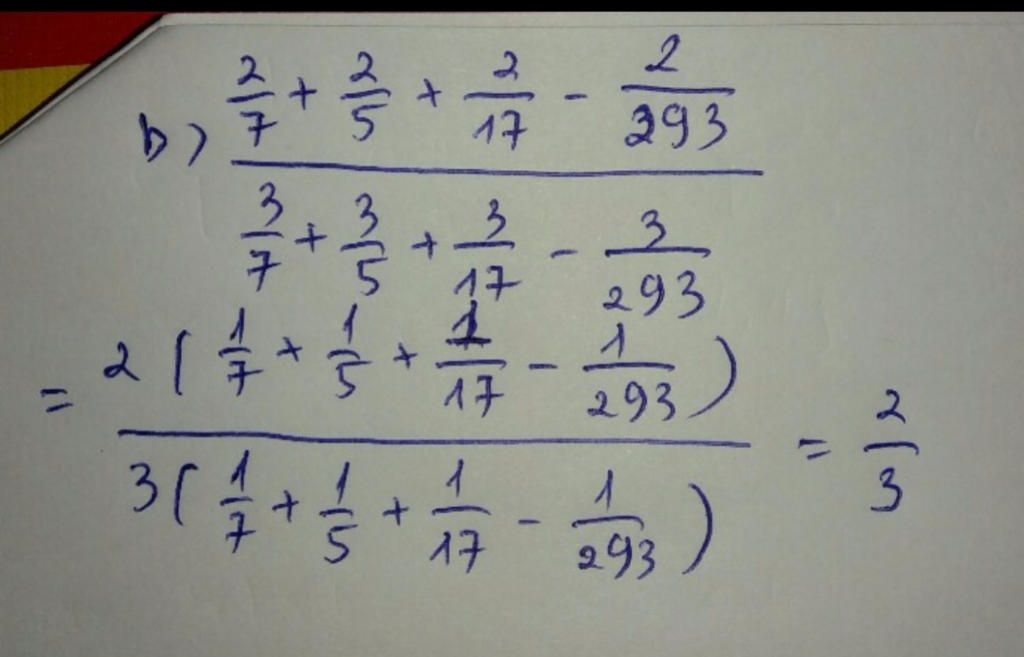 b) (2/7 + 2/5 + 2/17 - 2/293) / (3/7 + 3/5 + 3/17 - 3/293)
= 2(1/7 + 1/5 + 1/17 - 1/293) / 3(1/7 + 1/5 + 1/17 - 1/293) = 2/3